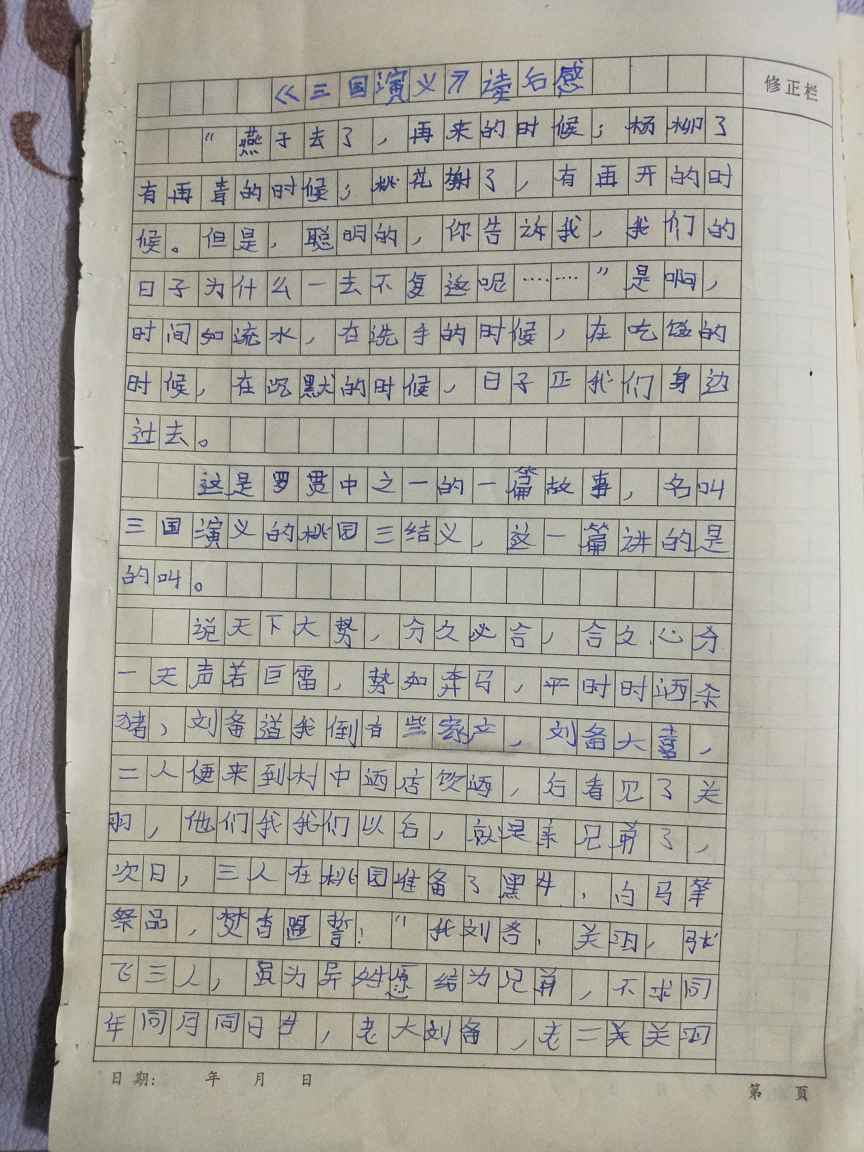 《三国演义》读后感
修正栏
“燕子去了，再来的时候；杨柳了
有再青的时候；桃花谢了，有再开的时
候。但是，聪明的，你告诉我，我们的
日子为什么一去不复返呢……”是啊，
时间如流水，在洗手的时候，在吃饭的
时候，在沉默的时候，日子正我们身边
过去。
这是罗贯中之一的一篇故事，名叫
三国演义的桃园三结义，这一篇讲的是
的叫。
说天下大势，分久必合，合久必分
一天声若巨雷，势如奔马，平时时酒杀
猪，刘备道我倒有些家产，刘备大喜，
二人便来到村中酒店饮酒，后者见了关
羽，他们我我们以后，就是亲兄弟了，
次日，三人在桃园准备了黑牛，白马等
祭品，焚香盟誓！“我刘备，关羽，张
飞三人，虽为异姓愿结为兄弟，不求同
年同月同日生，老大刘备，老二关关羽
日期： 年 月 日
第 页